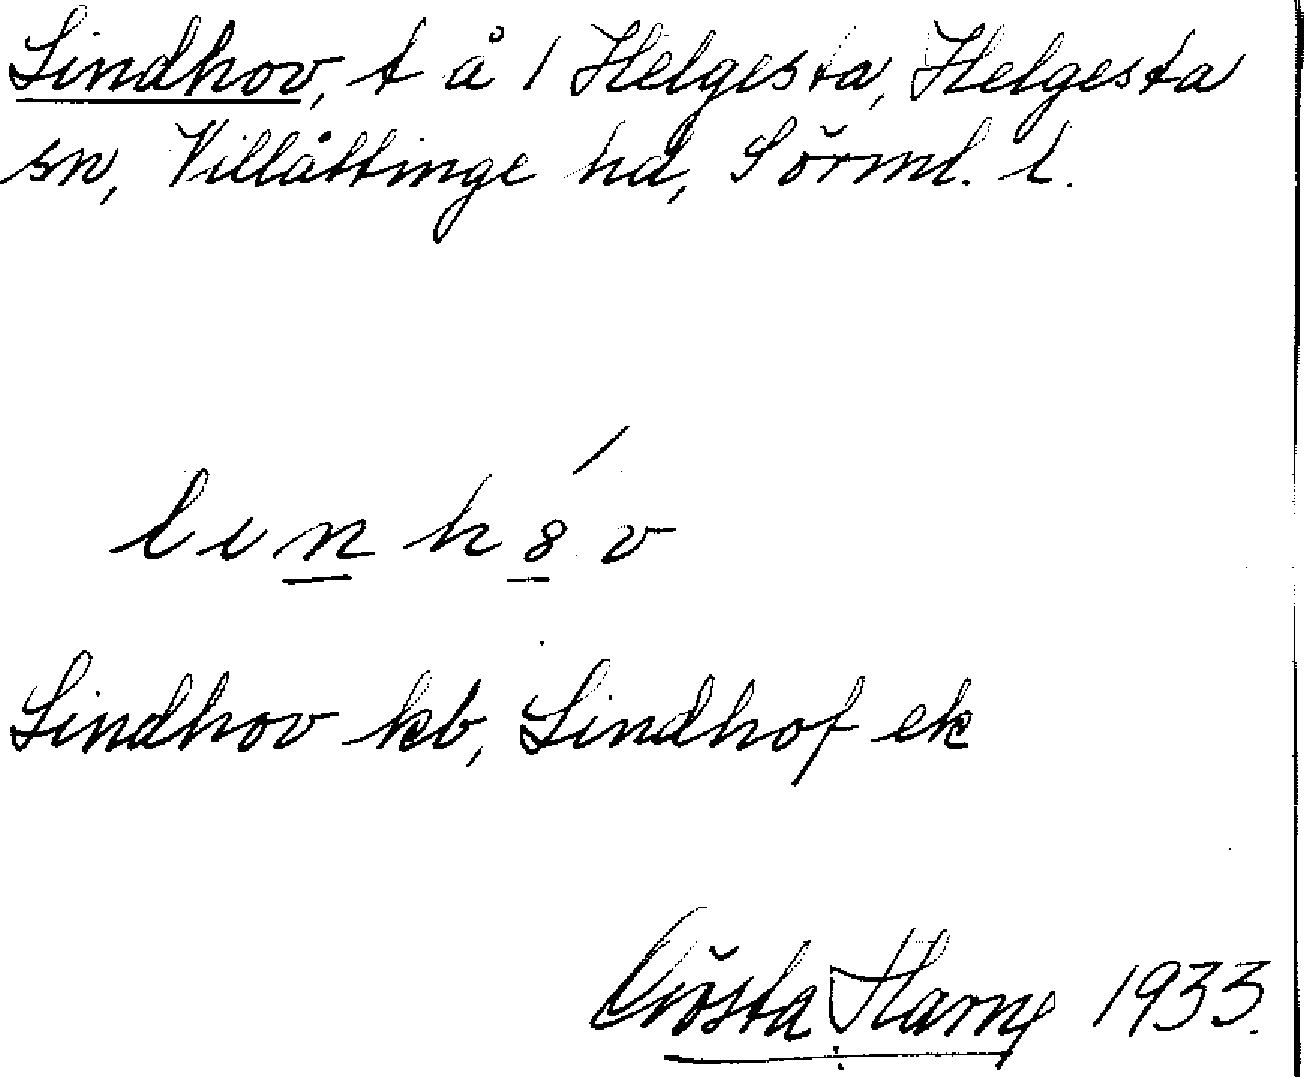 Lindhov, t å 1 Helgesta, Helgesta
sn, Villåttinge hd, Sörml. l.
Lindhov kb, Lindhof ek
Gösta 1933.